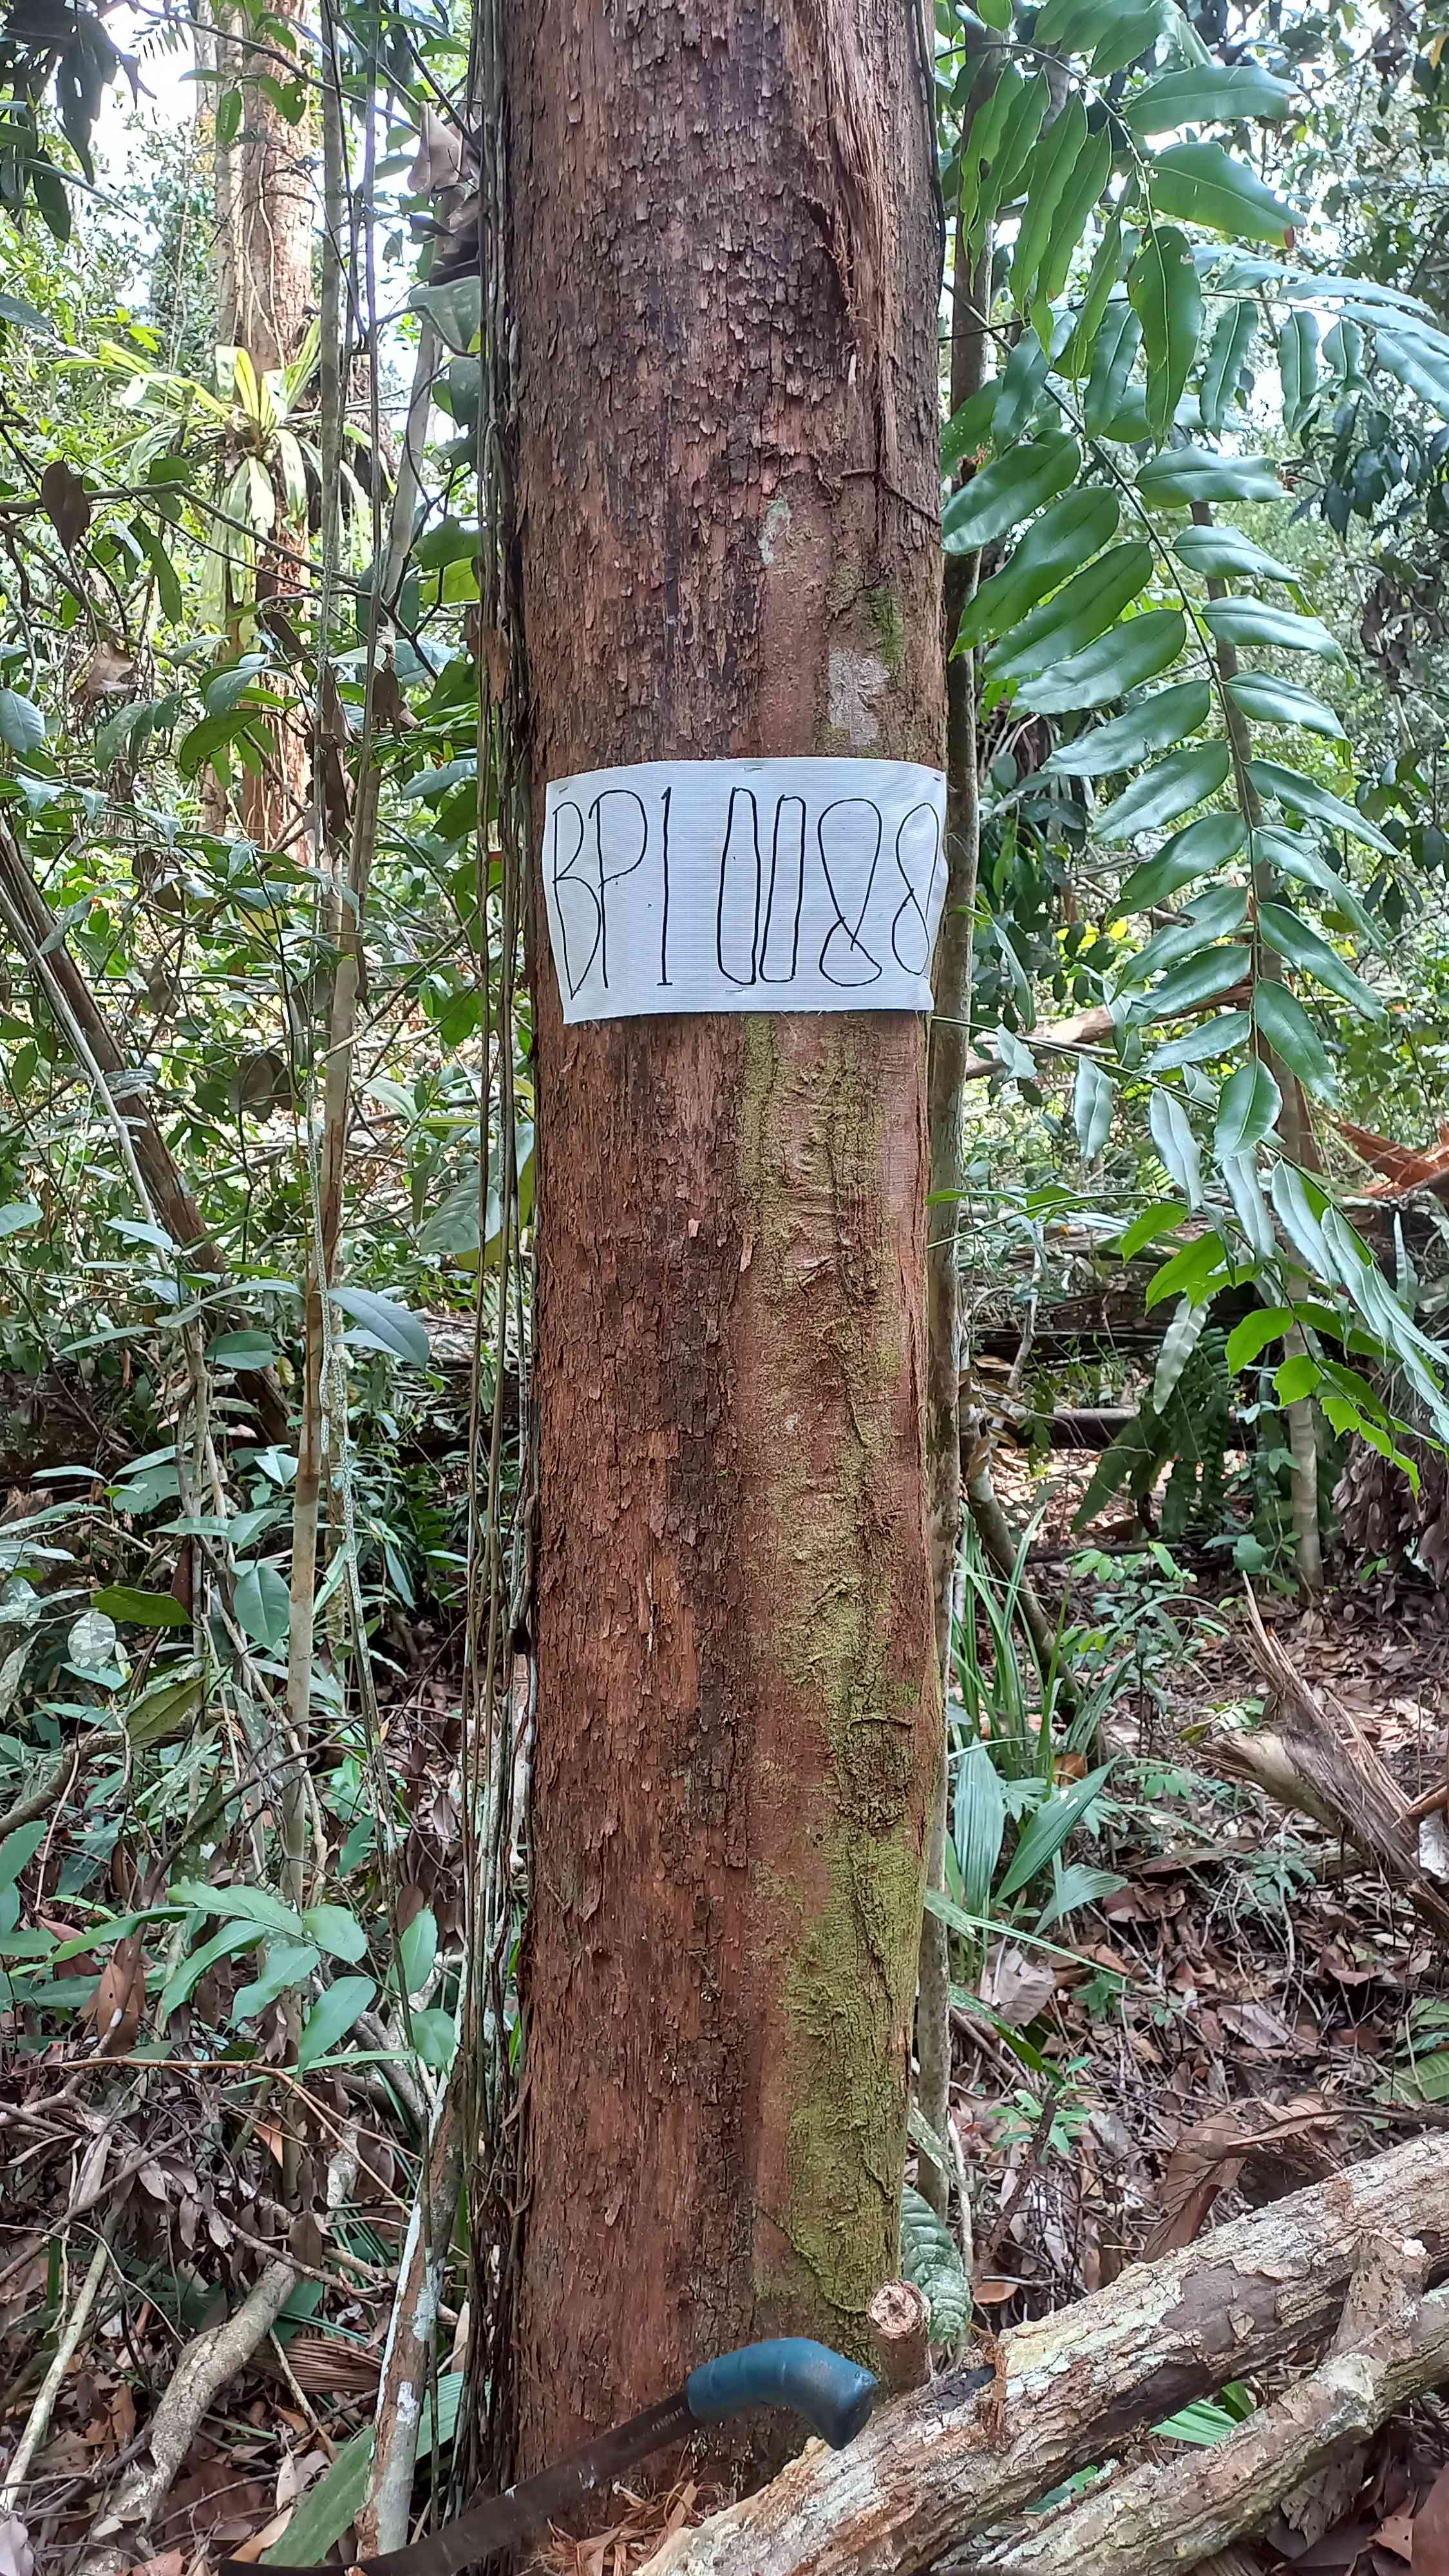 BP1 0088